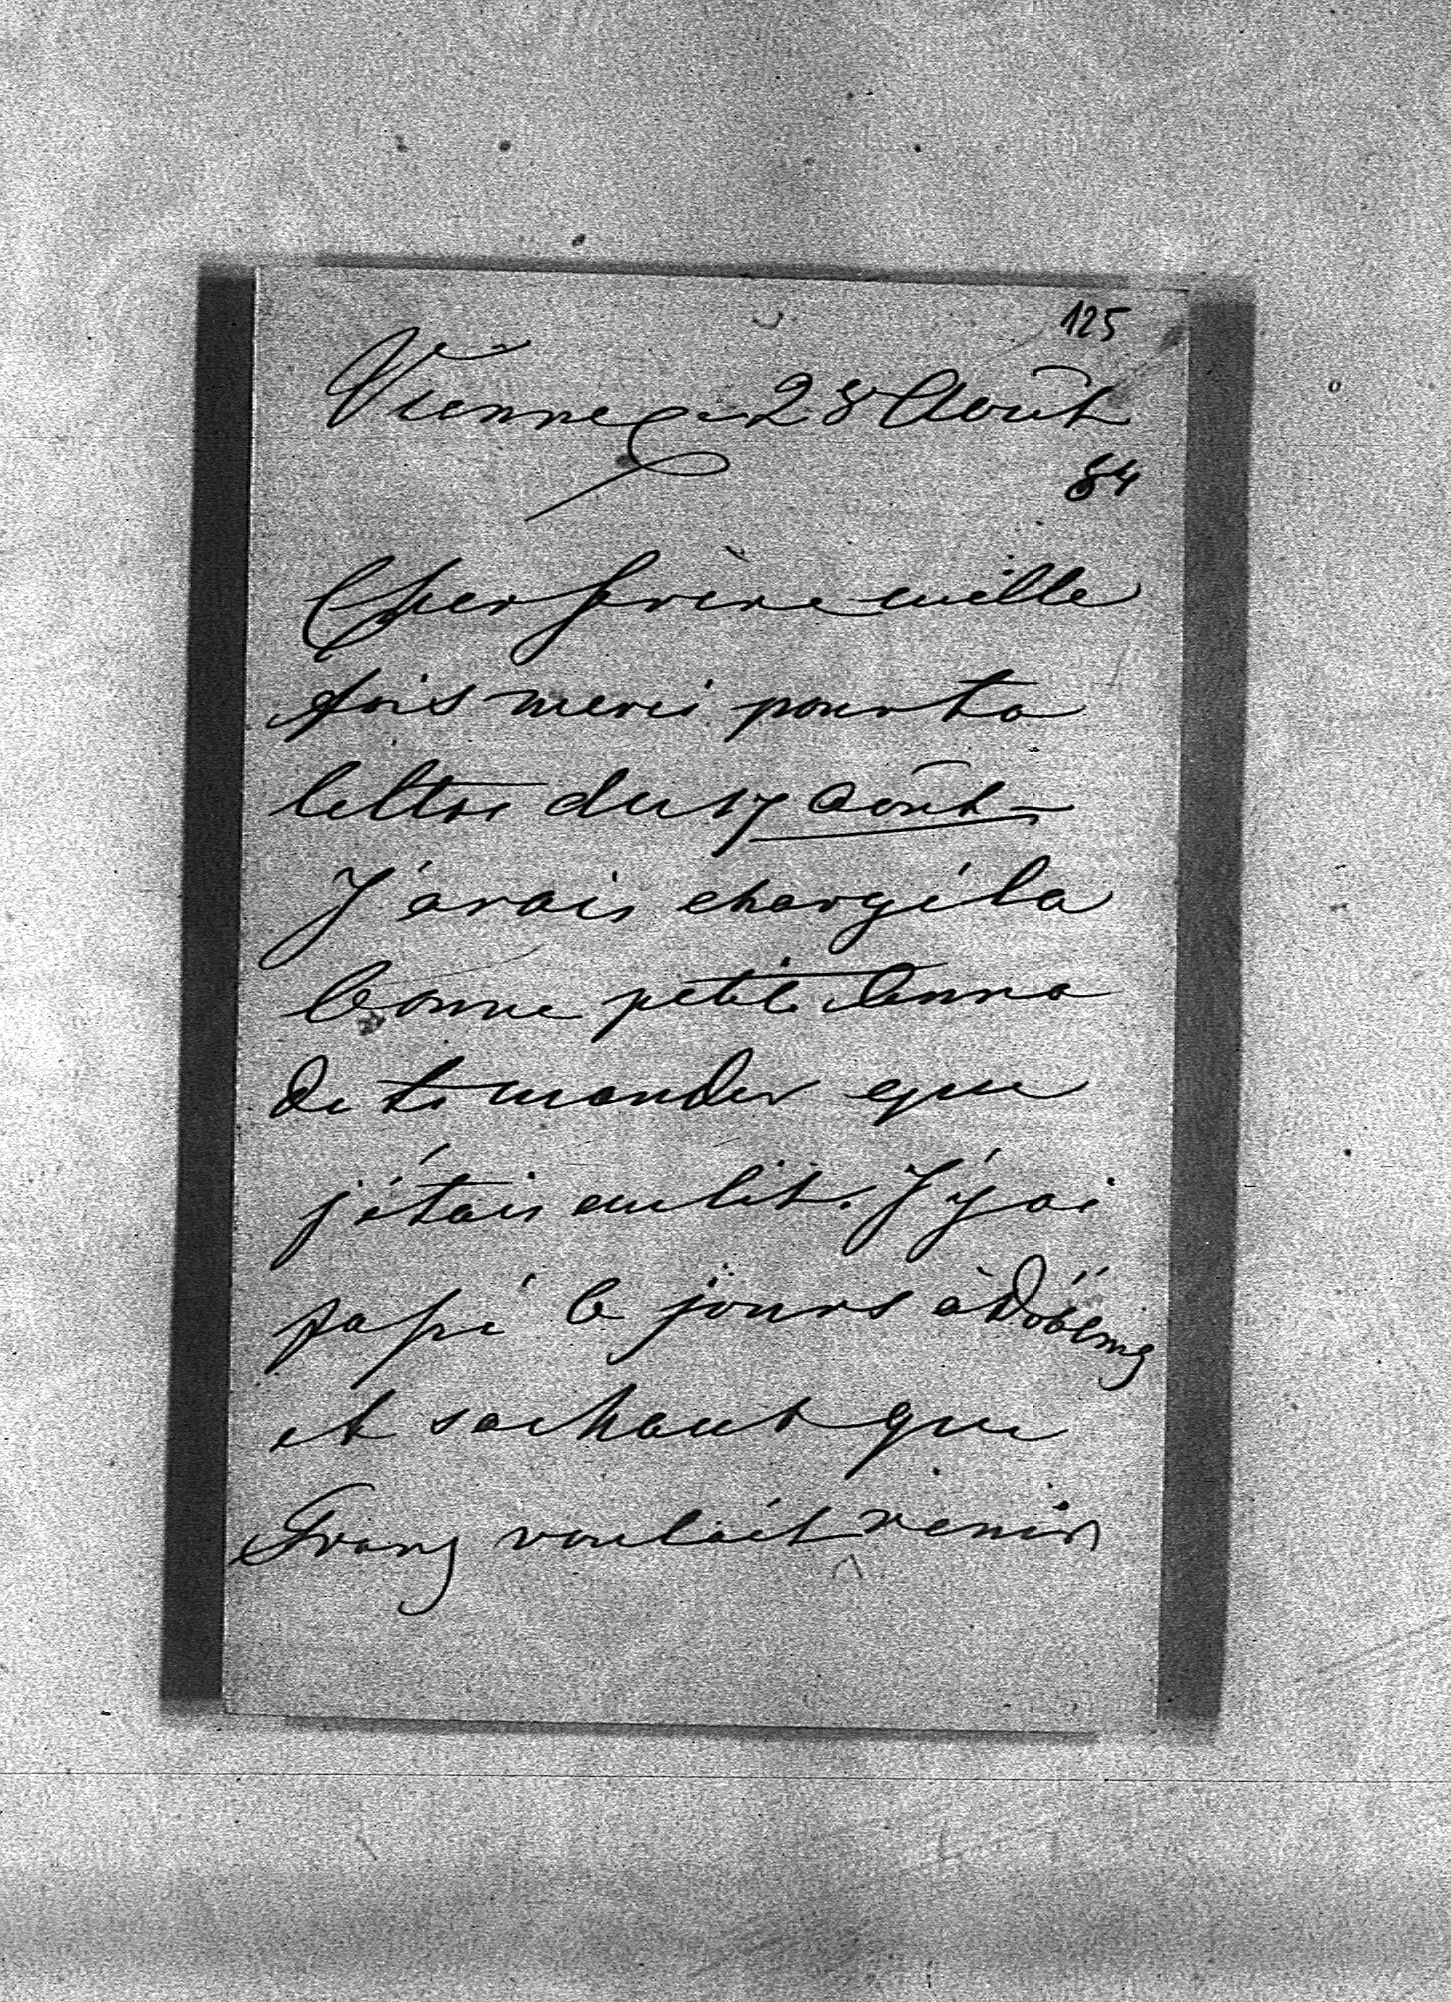 125
Vienne 28 Août
84
Cher frère mille
fois merci pour ta
lettre du 17 Août
J'avais chargé la
bonne petite Anna
de te mander que
j'étais au lit. J'y ai
passé 6 jours à Döbling
et sachant que
Franz voulait venir